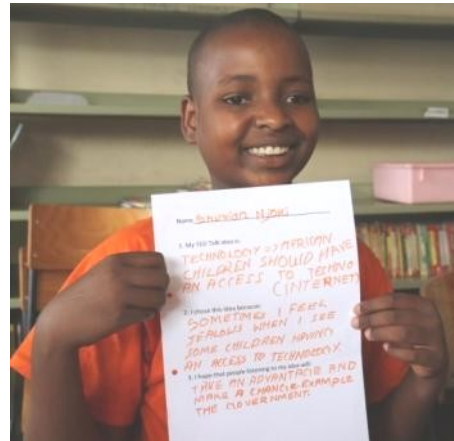 Name
1. My TED Talk idea is:
TECHNOLOGY >> AFRICAN
CHILDREN SHOULD HAVE
AN ACCESS TO TECHNO
(INTERNET)
2. I chose this idea because:
SOMETIMES I FEEL
JEALOUS WHEN I SEE
SOME CHILDREN HAVING
AN ACCESS TO TECHNOLOGY.
3. I hope that people listening to my idea will:
TAKE AN ADVANTAGE AND
MAKE A CHANGE EXAMPLE
THE GOVERNMENT.